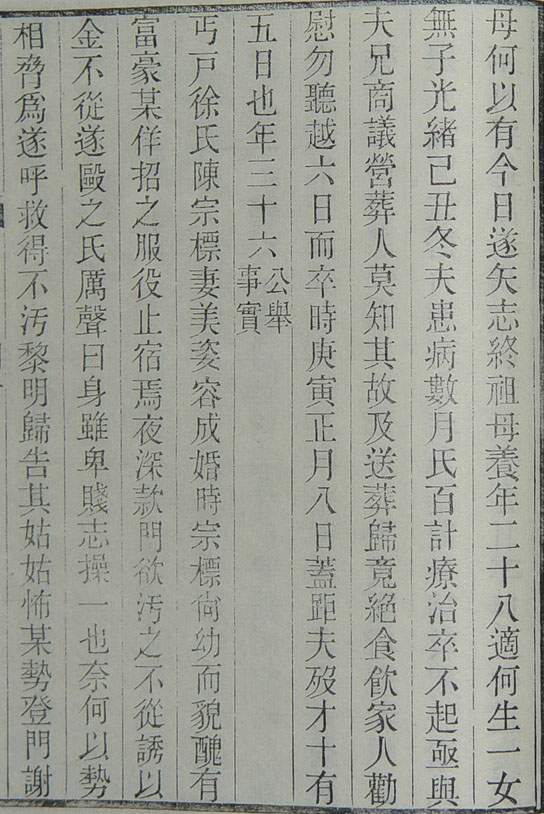 母何以有今日遂矢志終祖母養年二十八適何生一女
無子光緒己丑冬夫患病數月氏百計療治卒不起亟與
夫兄商議營葬人莫知其故及送葬歸竟絕食飮家人勸
慰勿聽越六日而卒時庚寅正月八日蓋距夫歿才十有
五日也年三十六公舉事實
丐戸徐氏陳宗標妻美姿容成婚時宗標尙幼而貌醜有
富豪某佯招之服役止宿焉夜深款門欲汚之不從誘以
金不從遂毆之氏厲聲曰身雖卑賤志操一也奈何以勢
相脅爲遂呼救得不汚黎明歸告其姑姑怖某勢登門謝